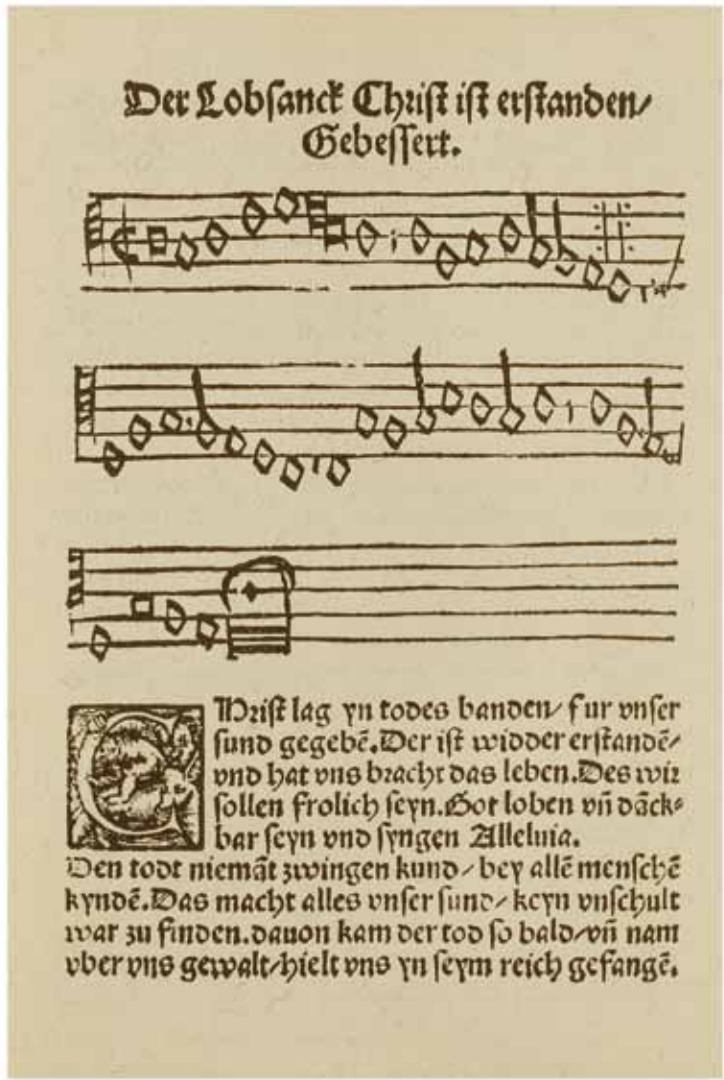 Der Lobſanck Chriſt iſt erſtanden/
Gebeſſert.
CHriſt lag yn todes banden/ fur vnſer
ſund gegebē. Der iſt widder erſtandē/
vnd hat vns bracht das leben. Des wir
ſollen frolich ſeyn. Got loben vn̄ dāck⸗
bar ſeyn vnd ſyngen Alleluia.
Den todt niemāt zwingen kund/ bey allē menſchē
kyndē. Das macht alles vnſer ſund/ keyn vnſchult
war zu finden. dauon kam der tod ſo bald/ vn̄ nam
vber vns gewalt/ hielt vns yn ſeym reich gefangē.